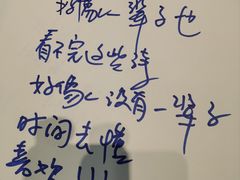 好像一辈子也
看不完这些诗
好像没有一辈子
时间去
喜欢!!!